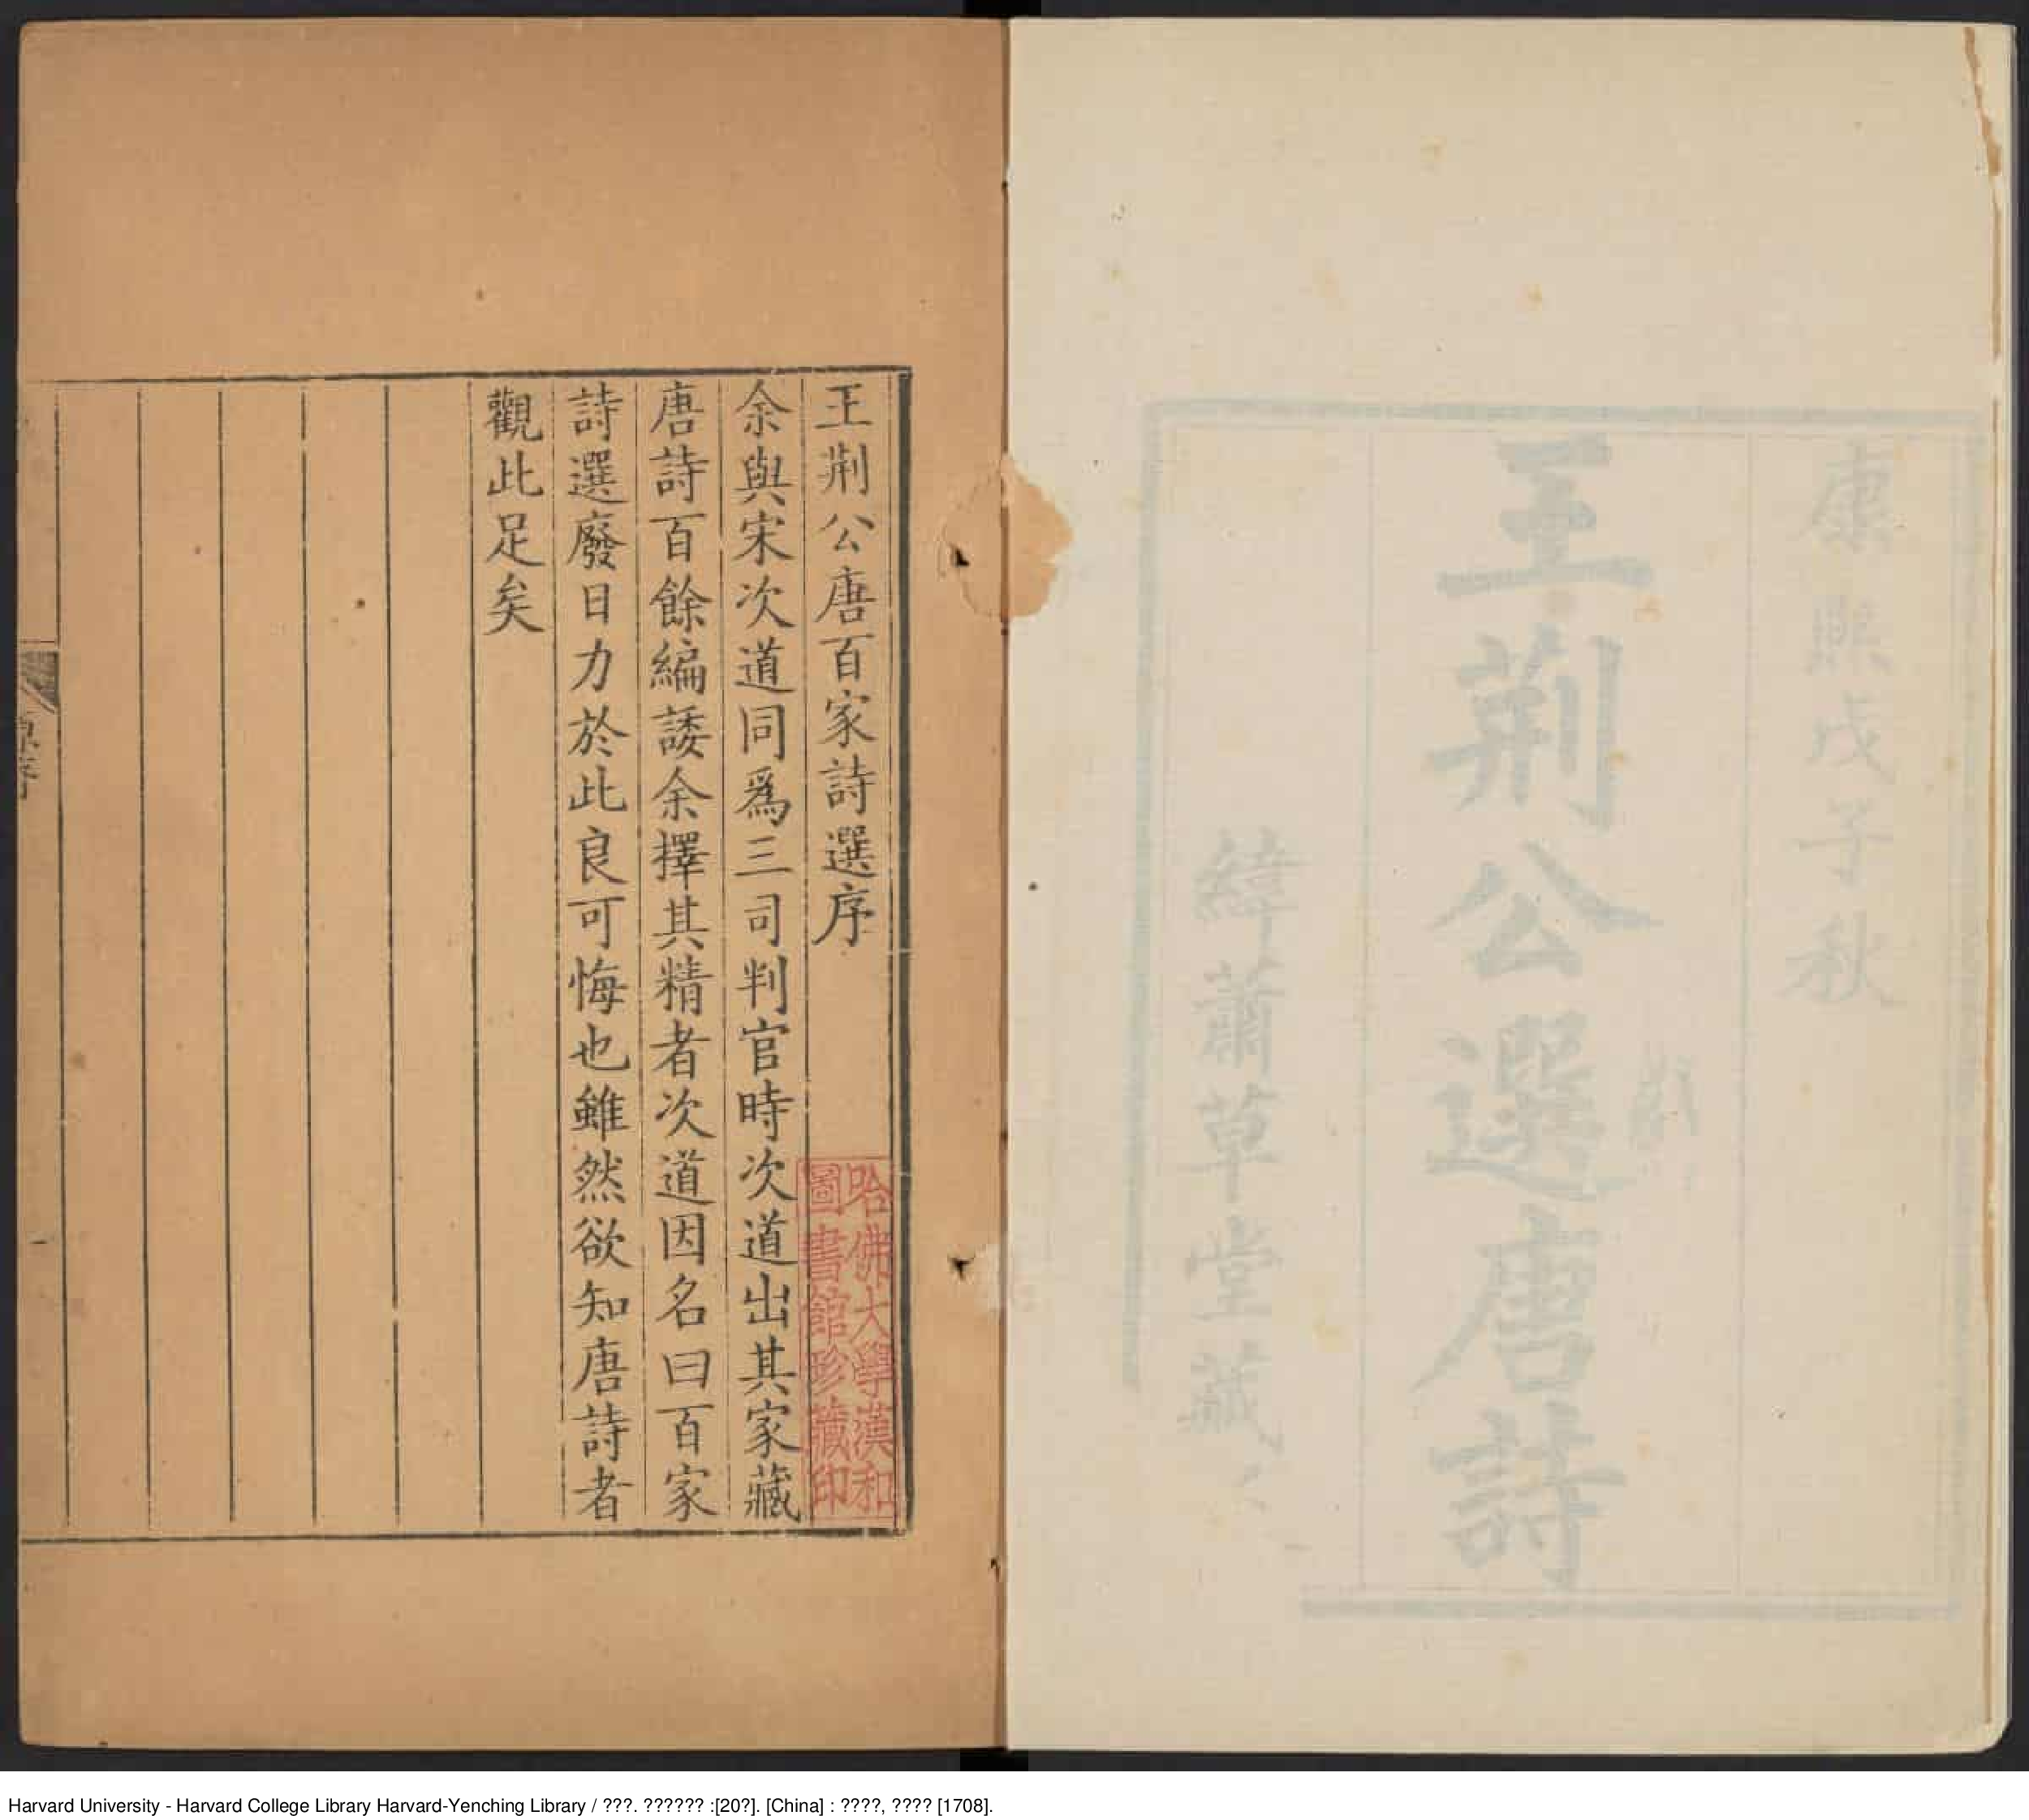 康熙戊子秋
王荊公選唐詩
緯蕭草堂藏
王荊公唐百家詩選序
余與宋次道同爲三司判官時次道出其家藏
唐詩百餘編諉余擇其精者次道因名曰百家
詩選廢日力於此良可悔也雖然欲知唐詩者
觀此足矣
哈佛大學漢和
圖書館珍藏印
Harvard University - Harvard College Library Harvard-Yenching Library / ???. ?????? :[20?]. [China] : ????, ???? [1708].